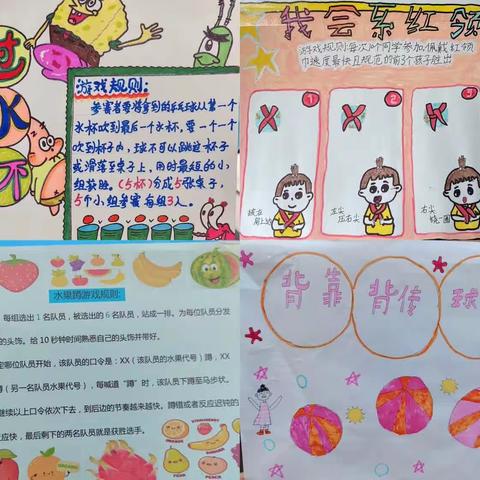 过
水
杯
游戏规则:
参赛者要将拿到的乒乓球从第一个
水杯吹到最后一个水杯,要一个一个
吹到杯子内,球不可以跳过杯子
或滑落至桌子上,用时最短的小
组获胜。(5杯)分成5张桌子,
5个小组参赛每组3人。
我会系红领
游戏规则:每次10个同学参加,佩戴红领
巾速度最快且规范的前3个孩子胜出
1
2
3
披在
肩上
左尖
压右尖
右尖
绕一圈
水果蹲游戏规则:
每组选出1名队员,被选出的6名队员,站成一排。为每位队员分发
的头饰。给10秒钟时间熟悉自己的头饰并带好。
定哪位队员开始,该队员的口令是:XX(该队员的水果代号)蹲,X
蹲(另一名队员水果代号),每喊道“蹲”时,该队员下蹲至马步状。
继续以上口令依次下去,到后边的节奏越来越快。蹲错或者反应迟钝的
反应快,最后剩下的两名队员就是获胜选手。
ORGANIC
STRAWBERRIES
ORANGE
PEAR
PEACH
背靠背传球